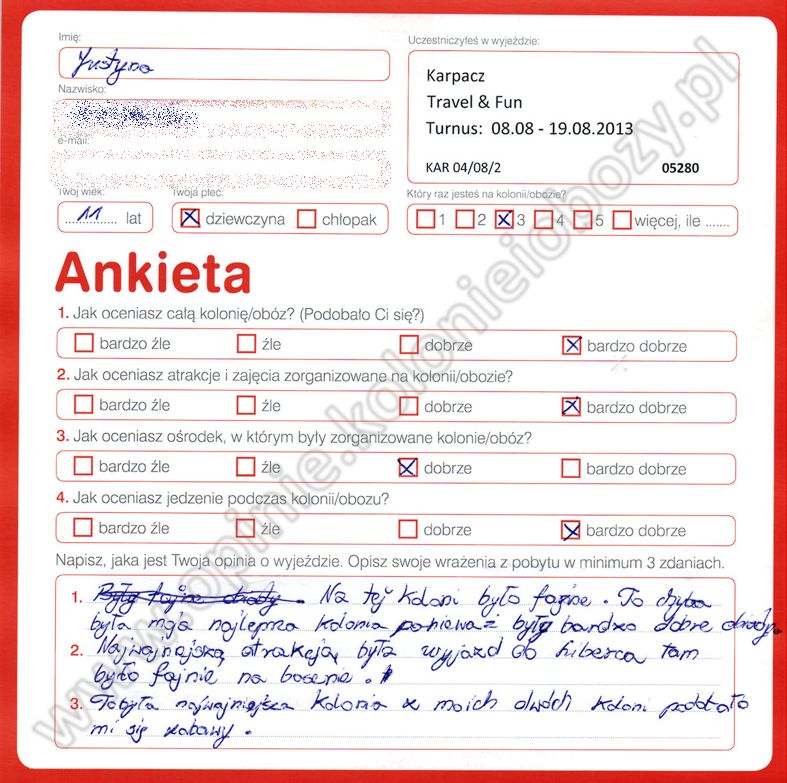 Imię:
Uczestniczyłeś w wyjeździe:
Justyna
Karpacz
Travel & Fun
Turnus: 08.08 - 19.08.2013
KAR 04/08/2 05280
Nazwisko:
e-mail:
Twój wiek:
Twoja płeć:
Który raz jesteś na kolonii/obozie?
11 lat
dziewczyna chłopak
1 2 3 4 5 więcej, ile .......
Ankieta
1. Jak oceniasz całą kolonię/obóz? (Podobało Ci się?)
bardzo źle źle dobrze bardzo dobrze
2. Jak oceniasz atrakcje i zajęcia zorganizowane na kolonii/obozie?
bardzo źle źle dobrze bardzo dobrze
3. Jak oceniasz ośrodek, w którym były zorganizowane kolonie/obóz?
bardzo źle źle dobrze bardzo dobrze
4. Jak oceniasz jedzenie podczas kolonii/obozu?
bardzo źle źle dobrze bardzo dobrze
Napisz, jaka jest Twoja opinia o wyjeździe. Opisz swoje wrażenia z pobytu w minimum 3 zdaniach.
1. Były fajne obiady. Na tej koloni było fajne. To chyba
była moja najlepsza kolonia ponieważ były bardzo dobre obiady.
2. atrakcją była wyjazd do liberca tam
było fajnie na basenie.
3. To była najfajniejsza kolonia z moich dwóch koloni podobało
mi się zabawy.
www.opinie.kolonieiobozy.pl